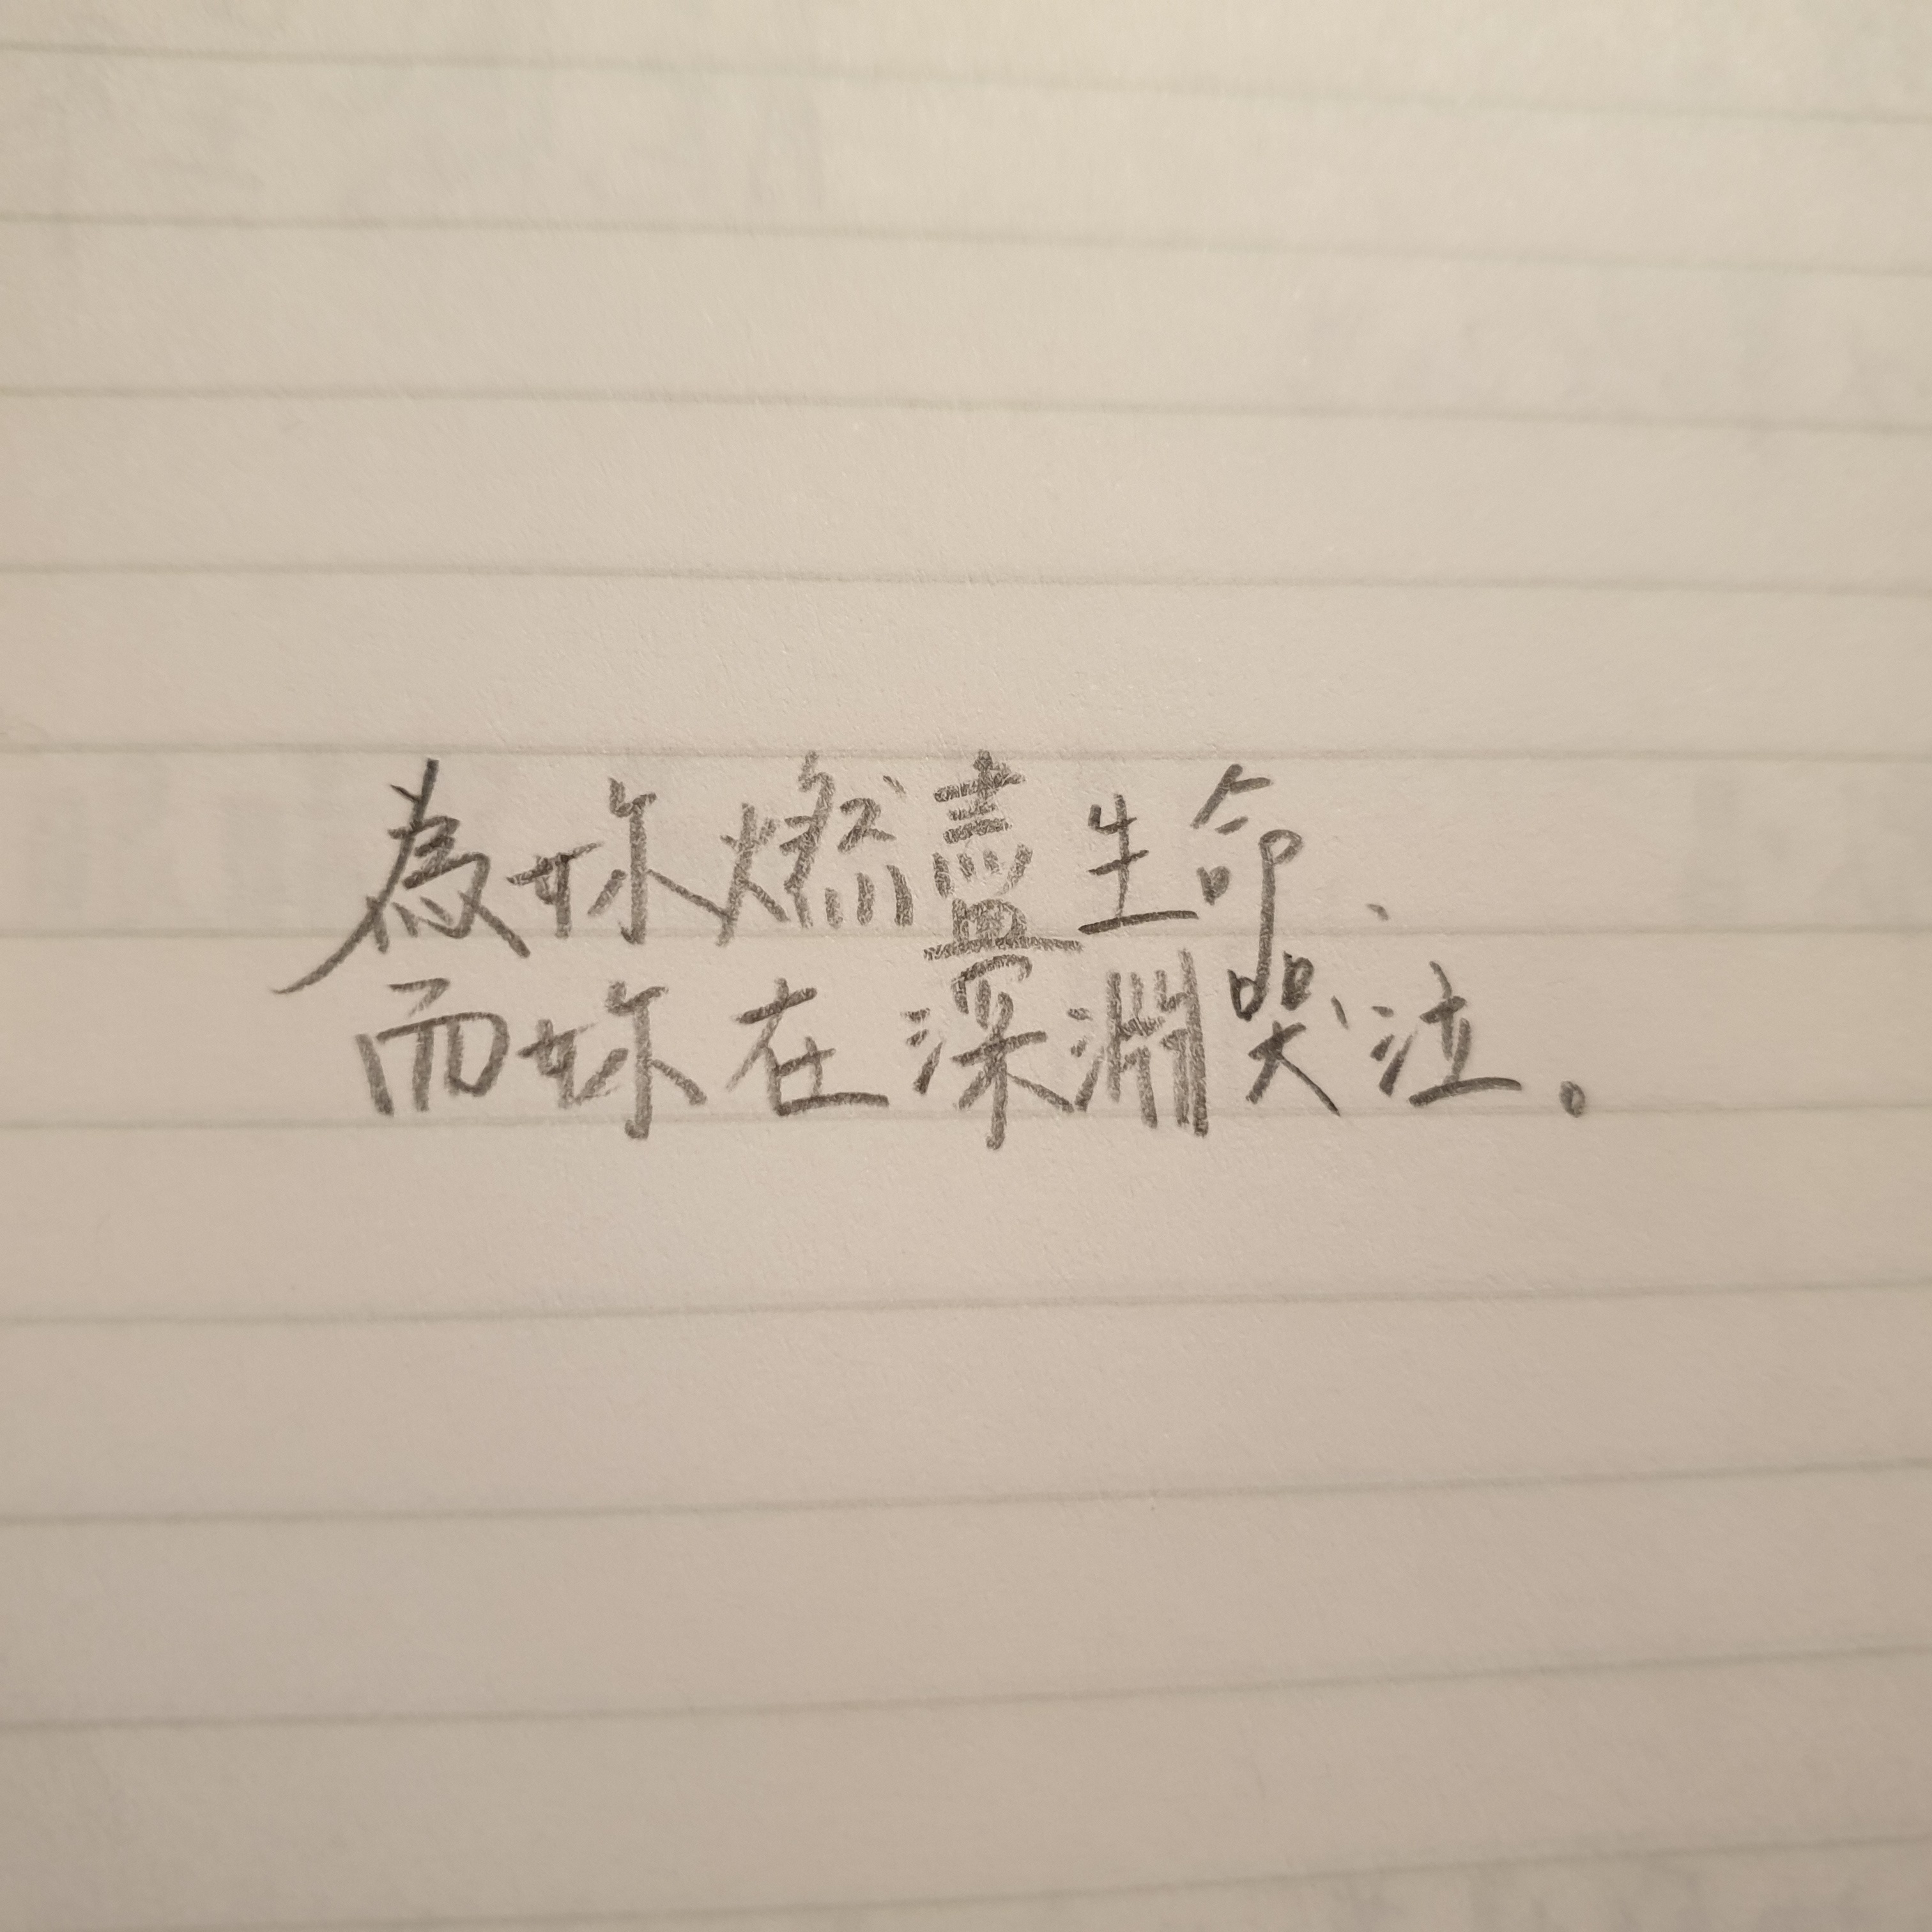 為妳燃盡生命、
而妳在深淵哭泣。